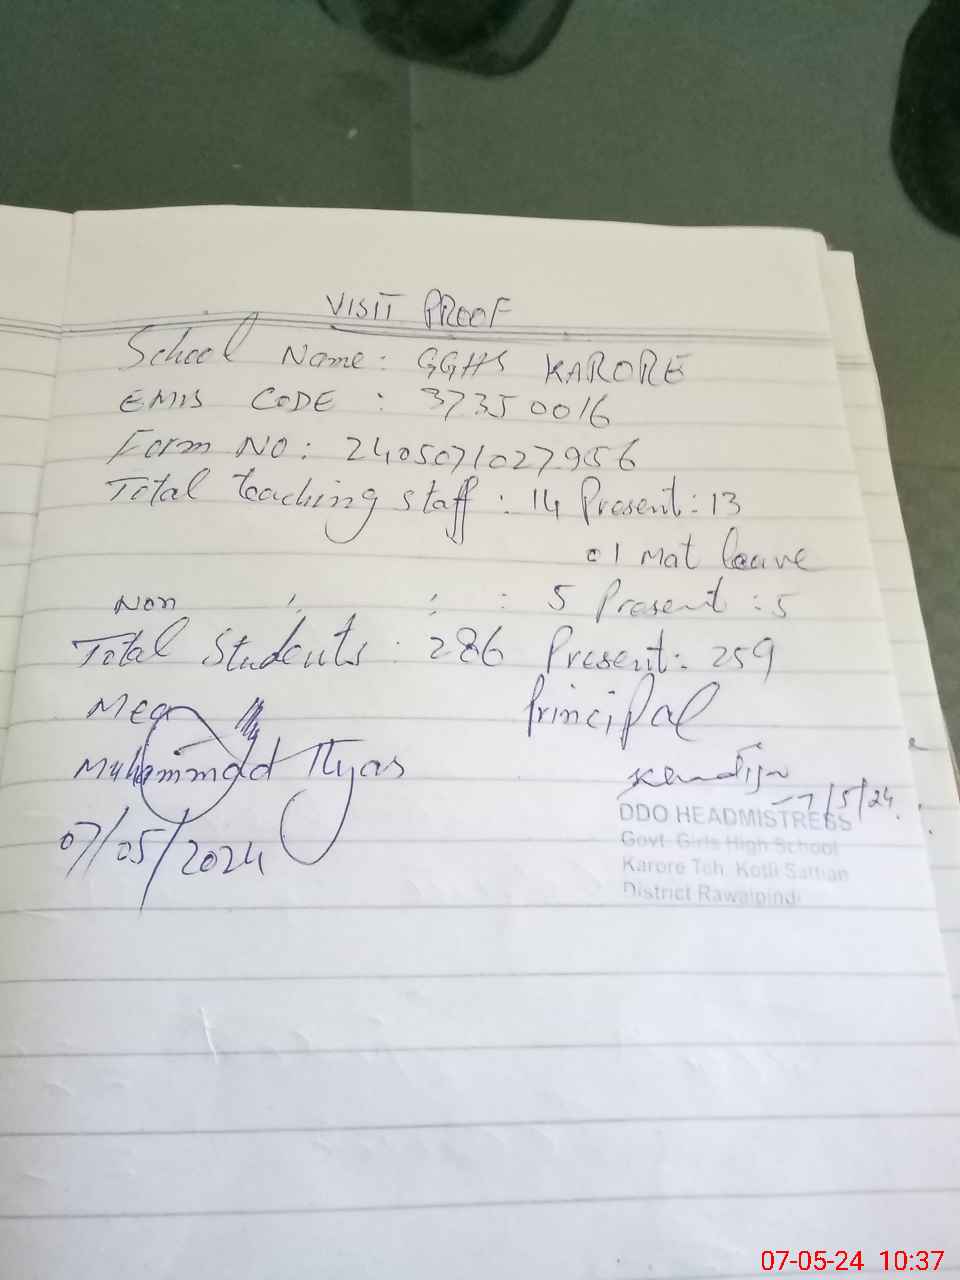 VISIT PROOF
School Name: GGHS KARORE
EMIS CODE : 37350016
Form NO: 2405071027956
Total teaching staff : 14 Present: 13
01 Mat leave
Non " " : 5 Present : 5
Total Students : 286 Present: 259
Mea Principal
Muhammad Ilyas
7/5/24.
DDO HEADMISTRESS
07/05/2024
Govt. Girls High School
Karore Teh. Kotli Sattian
District Rawalpindi
07-05-24 10:37